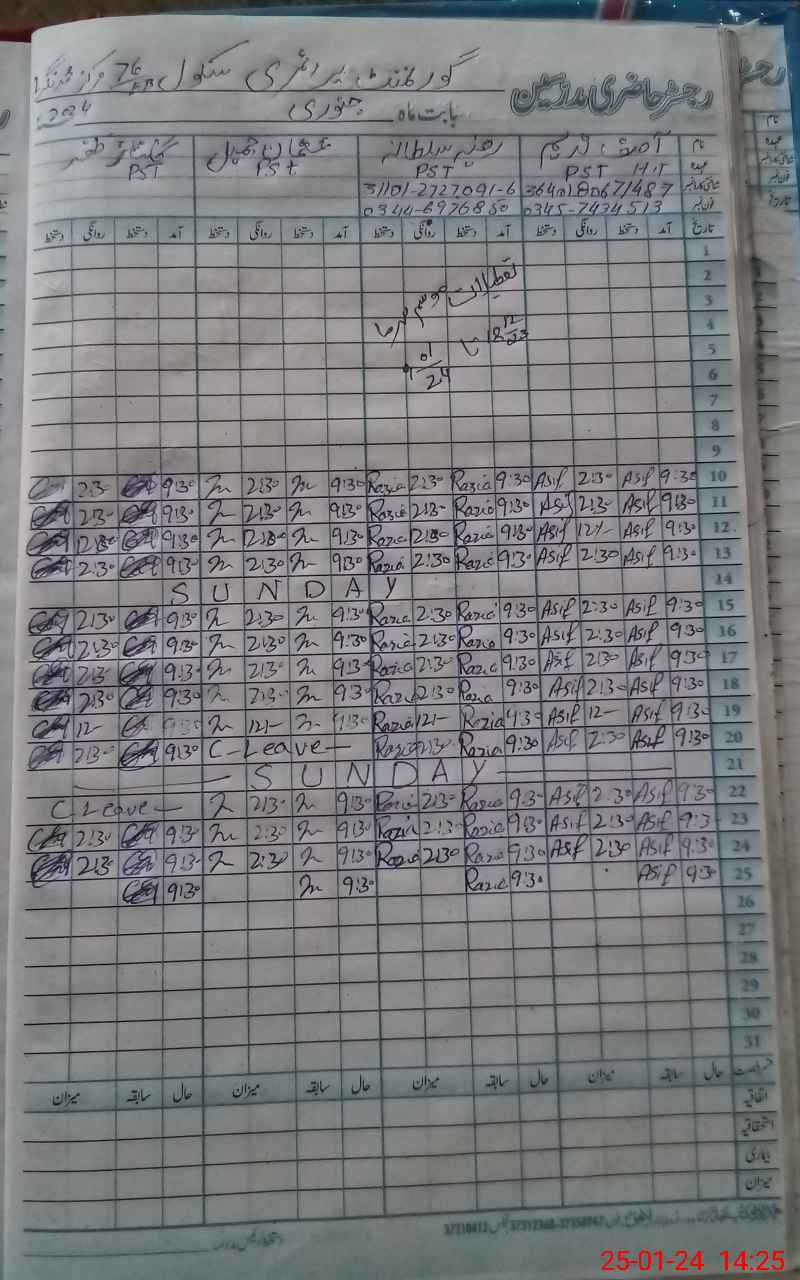 رجسٹر حاضری مدرسین گورنمنٹ پرائمری سکول 76/EB مرکز
بابت ماہ جنوری 2024
نام آصف ندیم رضیہ سلطانہ عثمان جمیل ظفر
عہدہ PST H.T PST PST PST
3640180671487 31101-2727091-6
0345-7434513 0344-6976850
تاریخ آمد دستخط روانگی دستخط آمد دستخط روانگی دستخط آمد دستخط روانگی دستخط آمد دستخط روانگی دستخط
1
2 تعطیلات موسم سرما
3
4 18 12/23 تا
5
6 01/24
7
8
9
10 9:30 Asif 2:30 Asif 9:30 Razia 2:30 Razia 9:30 2:30 9:30 2:30
11 9:30 Asif 2:30 Asif 9:30 Razia 2:30 Razia 9:30 2:30 9:30 2:30
12 9:30 Asif 12/- Asif 9:30 Razia Razia 9:30 9:30
13 9:30 Asif 2:30 Asif 9:30 Razia 2:30 Razia 9:30 2:30 9:30 2:30
14 SUNDAY
15 9:30 Asif 2:30 Asif 9:30 Razia 2:30 Razia 9:30 2:30 9:30 2:30
16 9:30 Asif 2:30 Asif 9:30 Razia 2:30 Razia 9:30 2:30 9:30 2:30
17 9:30 Asif 2:30 Asif 9:30 Razia 2:30 Razia 9:30 2:30 9:30 2:30
18 9:30 Asif 2:30 Asif 9:30 Razia 2:30 Razia 9:30 2:30 9:30 2:30
19 9:30 Asif 12/- Asif 9:30 Razia 12/- Razia 9:30 12/- 9:30 12/-
20 9:30 Asif 2:30 Asif 9:30 Razia 2:30 Razia C-Leave 9:30 2:30
21 SUNDAY
22 9:30 Asif 2:30 Asif 9:30 Razia 2:30 Razia 9:30 2:30 C Leave
23 9:30 Asif 2:30 Asif 9:30 Razia 2:30 Razia 9:30 2:30 9:30 2:30
24 9:30 Asif 2:30 Asif 9:30 Razia 2:30 Razia 9:30 2:30 9:30 2:30
25 9:30 Asif 9:30 Razia 9:30 9:30
26
27
28
29
30
31
رخصت حال سابقہ میزان حال سابقہ میزان حال سابقہ میزان حال سابقہ میزان
اتفاقیہ
استحقاقیہ
بیماری
میزان
25-01-24 14:25